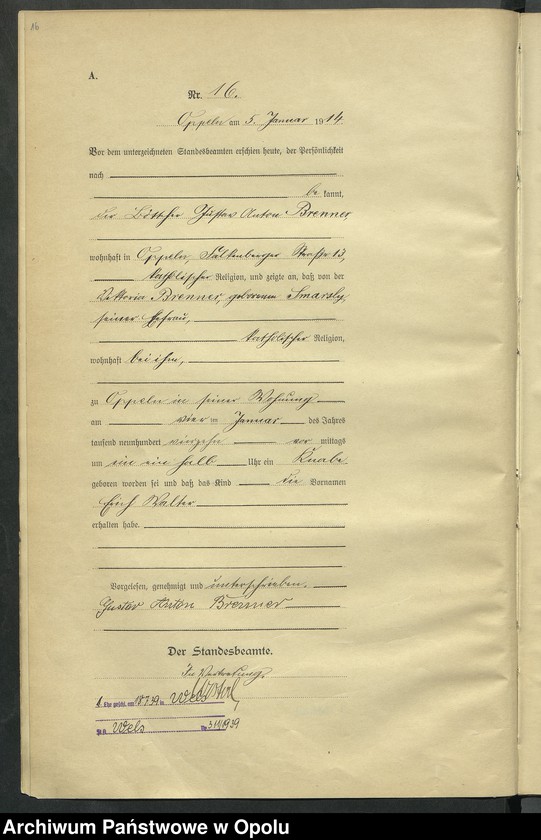 16
A.
Nr. 16.
Oppeln am 5. Januar 1914.
Vor dem unterzeichneten Standesbeamten erschien heute, der Persönlichkeit
nach
be kannt,
der Böttcher Gustav Anton Brenner
wohnhaft in Oppeln, Falkenberger Straße 13,
katholischer Religion, und zeigte an, daß von der
Viktoria Brenner, geborenen Smarsly,
seiner Ehefrau,
katholischer Religion,
wohnhaft bei ihm,
zu Oppeln in seiner Wohnung
am vierten Januar des Jahres
tausend neunhundert vierzehn vor mittags
um ein ein halb Uhr ein Knabe
geboren worden sei und daß das Kind die Vornamen
Erich Walter
erhalten habe.
Vorgelesen, genehmigt und unterschrieben.
Gustav Anton Brenner
Der Standesbeamte.
In Vertretung.
1. Ehe geschl. am 18.7.39 in Wels
Wels Nr. 311/1939
Archiwum Państwowe w Opolu